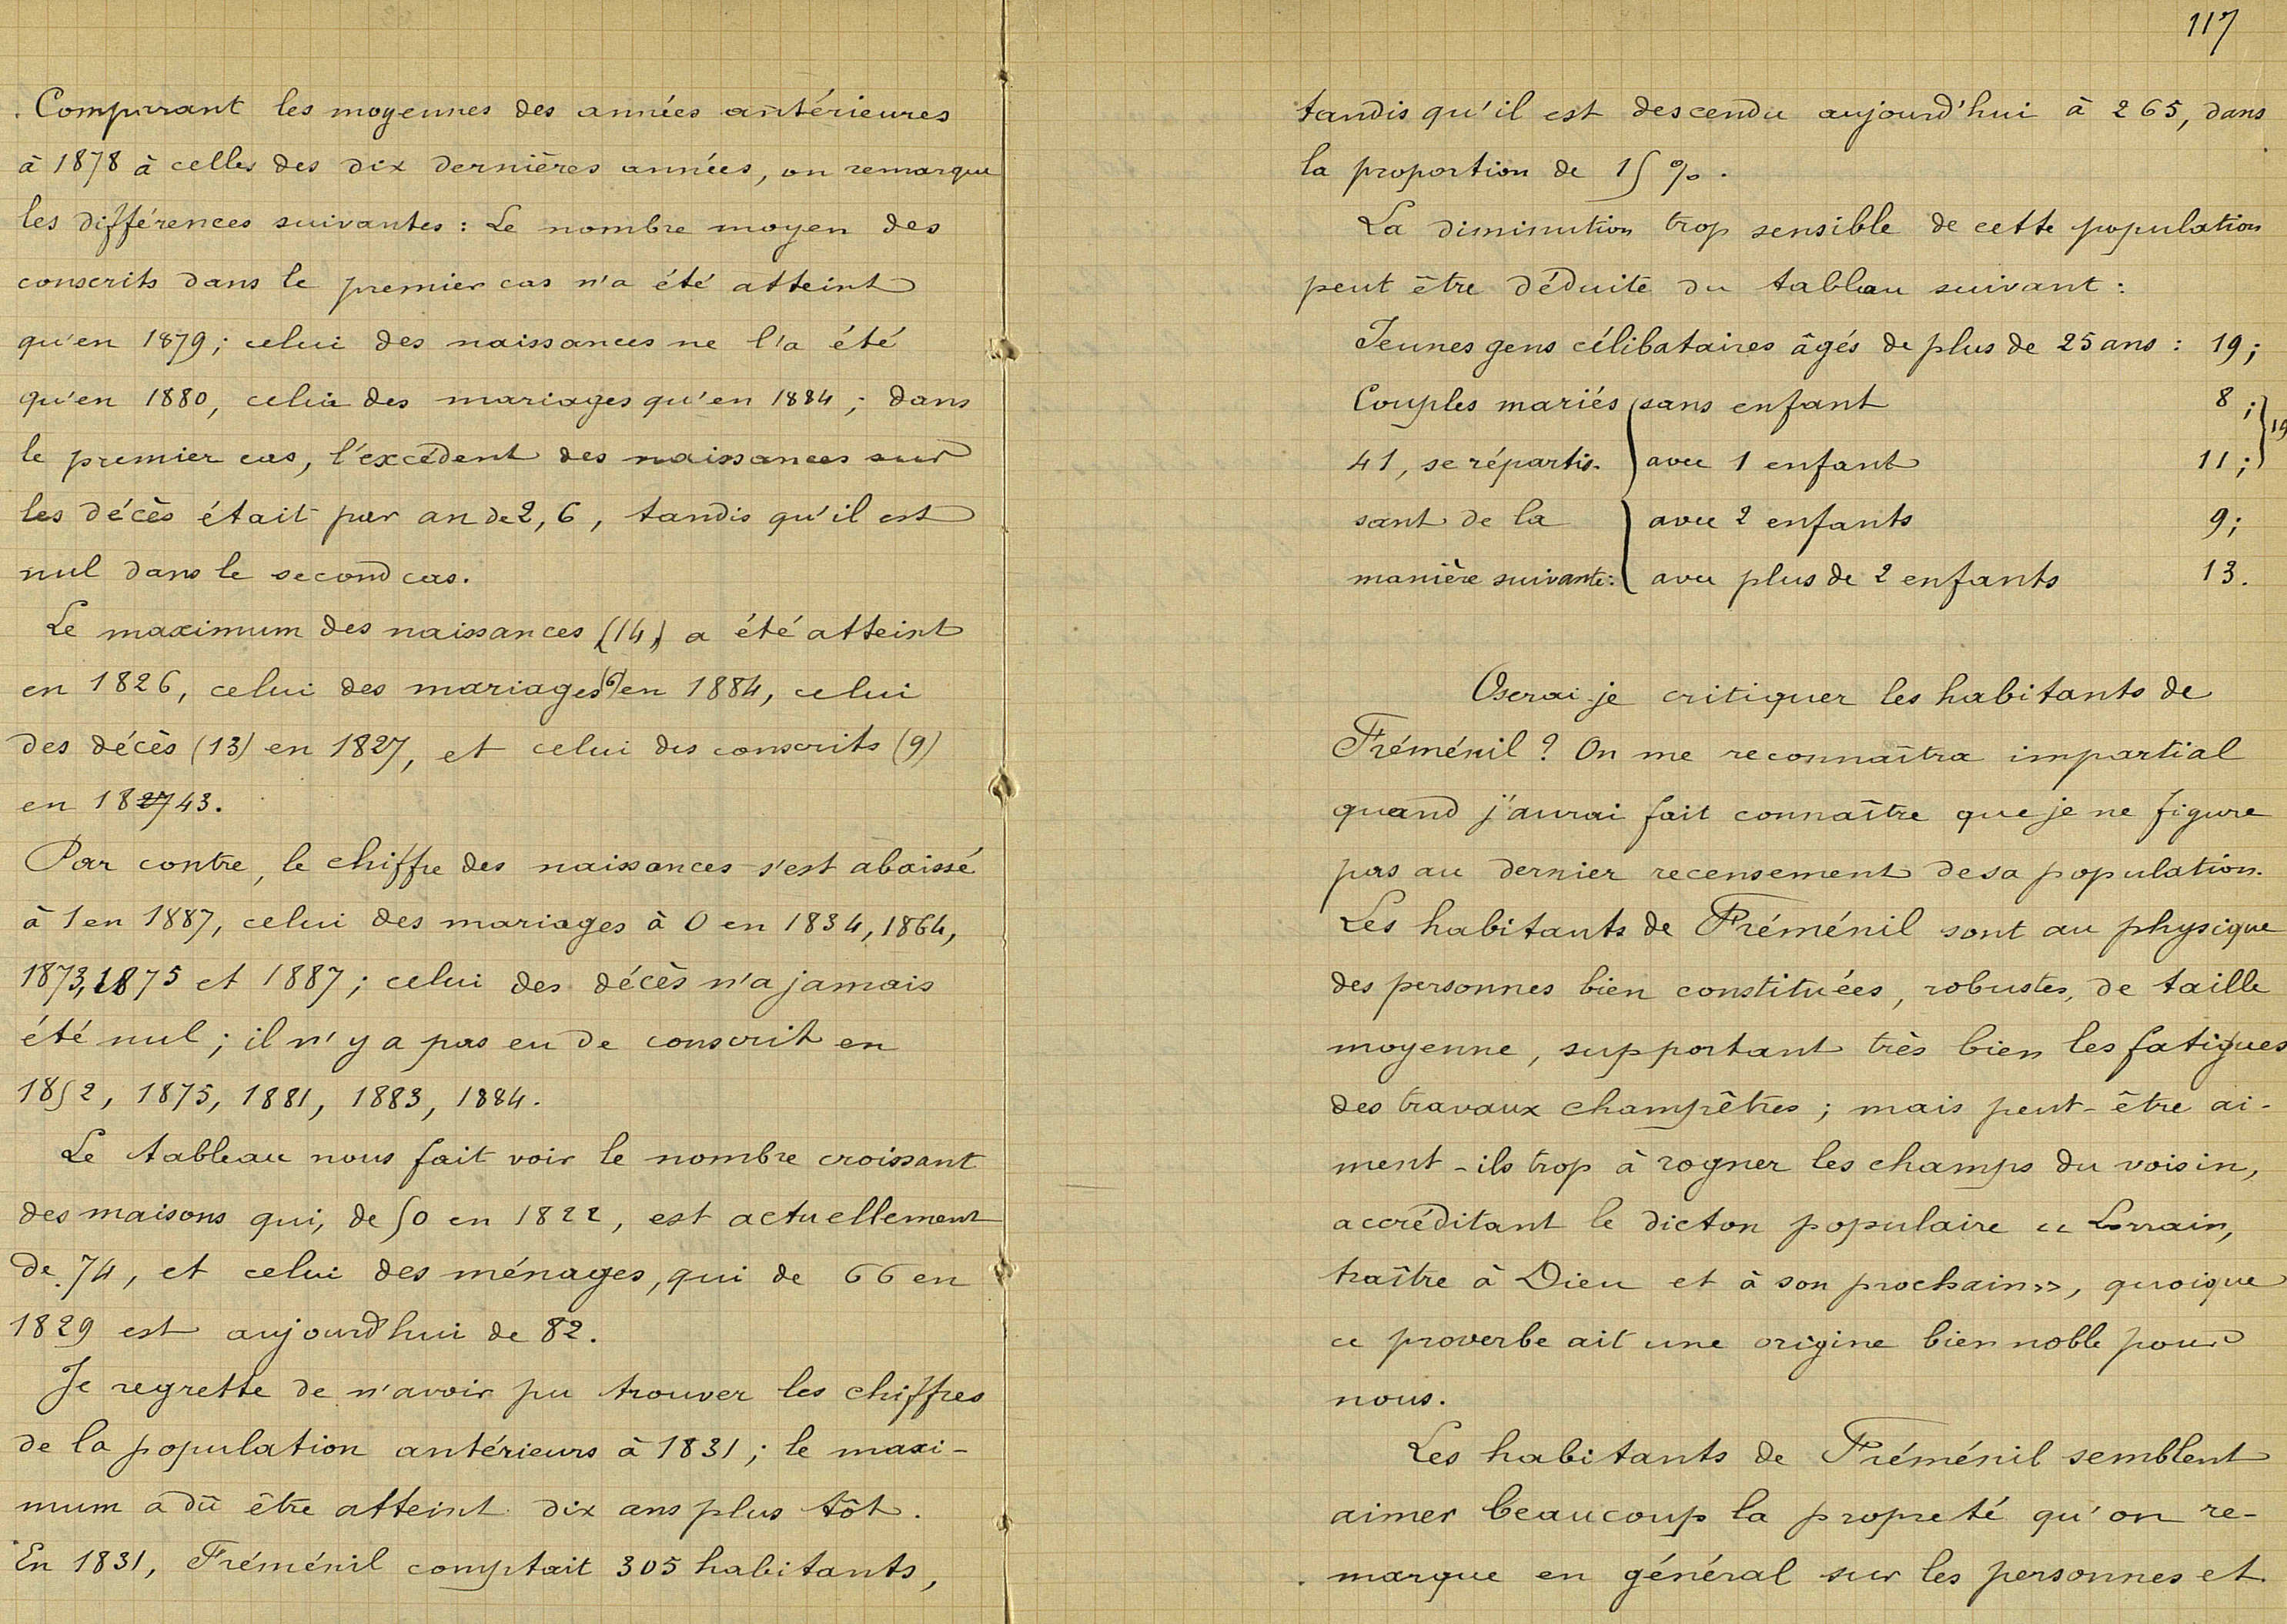 Comparant les moyennes des années antérieures
à 1878 à celles des dix dernières années, on remarque
les différences suivantes : Le nombre moyen des
conscrits dans le premier cas n'a été atteint
qu'en 1879 ; celui des naissances ne l'a été
qu'en 1880, celui des mariages qu'en 1884 ; dans
le premier cas, l'excédent des naissances sur
les décès était par an de 2,6, tandis qu'il est
nul dans le second cas.
Le maximum des naissances (14) a été atteint
en 1826, celui des mariages (6) en 1884, celui
des décès (13) en 1827, et celui des conscrits (9)
en 182743.
Par contre, le chiffre des naissances s'est abaissé
à 1 en 1887, celui des mariages à 0 en 1834, 1864,
1873, 1875 et 1887 ; celui des décès n'a jamais
été nul ; il n'y a pas eu de conscrit en
1852, 1875, 1881, 1883, 1884.
Le tableau nous fait voir le nombre croissant
des maisons qui, de 50 en 1822, est actuellement
de 74, et celui des ménages, qui de 66 en
1829 est aujourd'hui de 82.
Je regrette de n'avoir pu trouver les chiffres
de la population antérieurs à 1831 ; le maxi-
mum a dû être atteint dix ans plus tôt.
En 1831, Fréménil comptait 305 habitants,
117
tandis qu'il est descendu aujourd'hui à 265, dans
la proportion de 15 %.
La diminution trop sensible de cette population
peut être déduite du tableau suivant :
Jeunes gens célibataires âgés de plus de 25 ans : 19 ;
Couples mariés sans enfant 8 ; 19
41, se répartis- avec 1 enfant 11 ;
sant de la avec 2 enfants 9 ;
manière suivante : avec plus de 2 enfants 13.
Oserai-je critiquer les habitants de
Fréménil ? On me reconnaîtra impartial
quand j'aurai fait connaître que je ne figure
pas au dernier recensement de sa population.
Les habitants de Fréménil sont au physique
des personnes bien constituées, robustes, de taille
moyenne, supportant très bien les fatigues
des travaux champêtres ; mais peut-être ai-
ment-ils trop à rogner les champs du voisin,
accréditant le dicton populaire « Lorrain,
traître à Dieu et à son prochain », quoique
ce proverbe ait une origine bien noble pour
nous.
Les habitants de Fréménil semblent
aimer beaucoup la propreté qu'on re-
marque en général sur les personnes et